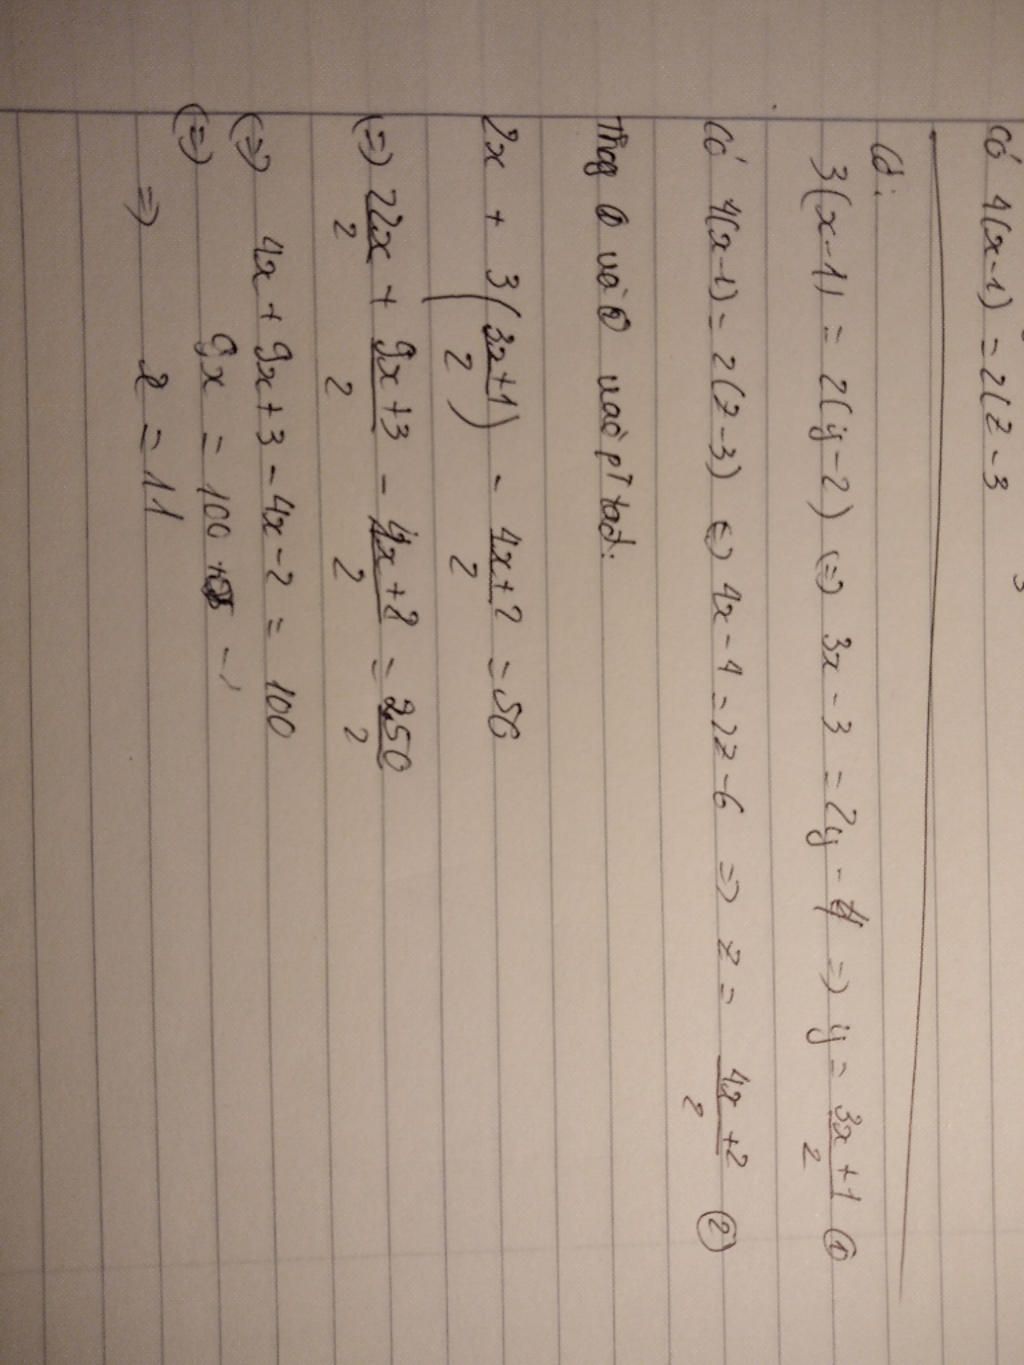 Có 4(x-1) = 2(z-3
3
Có:
3(x-1) = 2(y-2) (=) 3x - 3 = 2y - 4 => y = 3x+1/2 ①
Có 4(x-1) = 2(z-3) (=) 4x - 4 = 2z - 6 => z = 4x+2/2 ②
Thay ① và ② vào pT
2x + 3(3x+1/2) - 4x+2/2 = 50
(=) 2.2x/2 + 9x+3/2 - 4x+2/2 = 2.50/2
(=) 4x + 9x + 3 - 4x - 2 = 100
(=) 9x = 100
=) x = 11